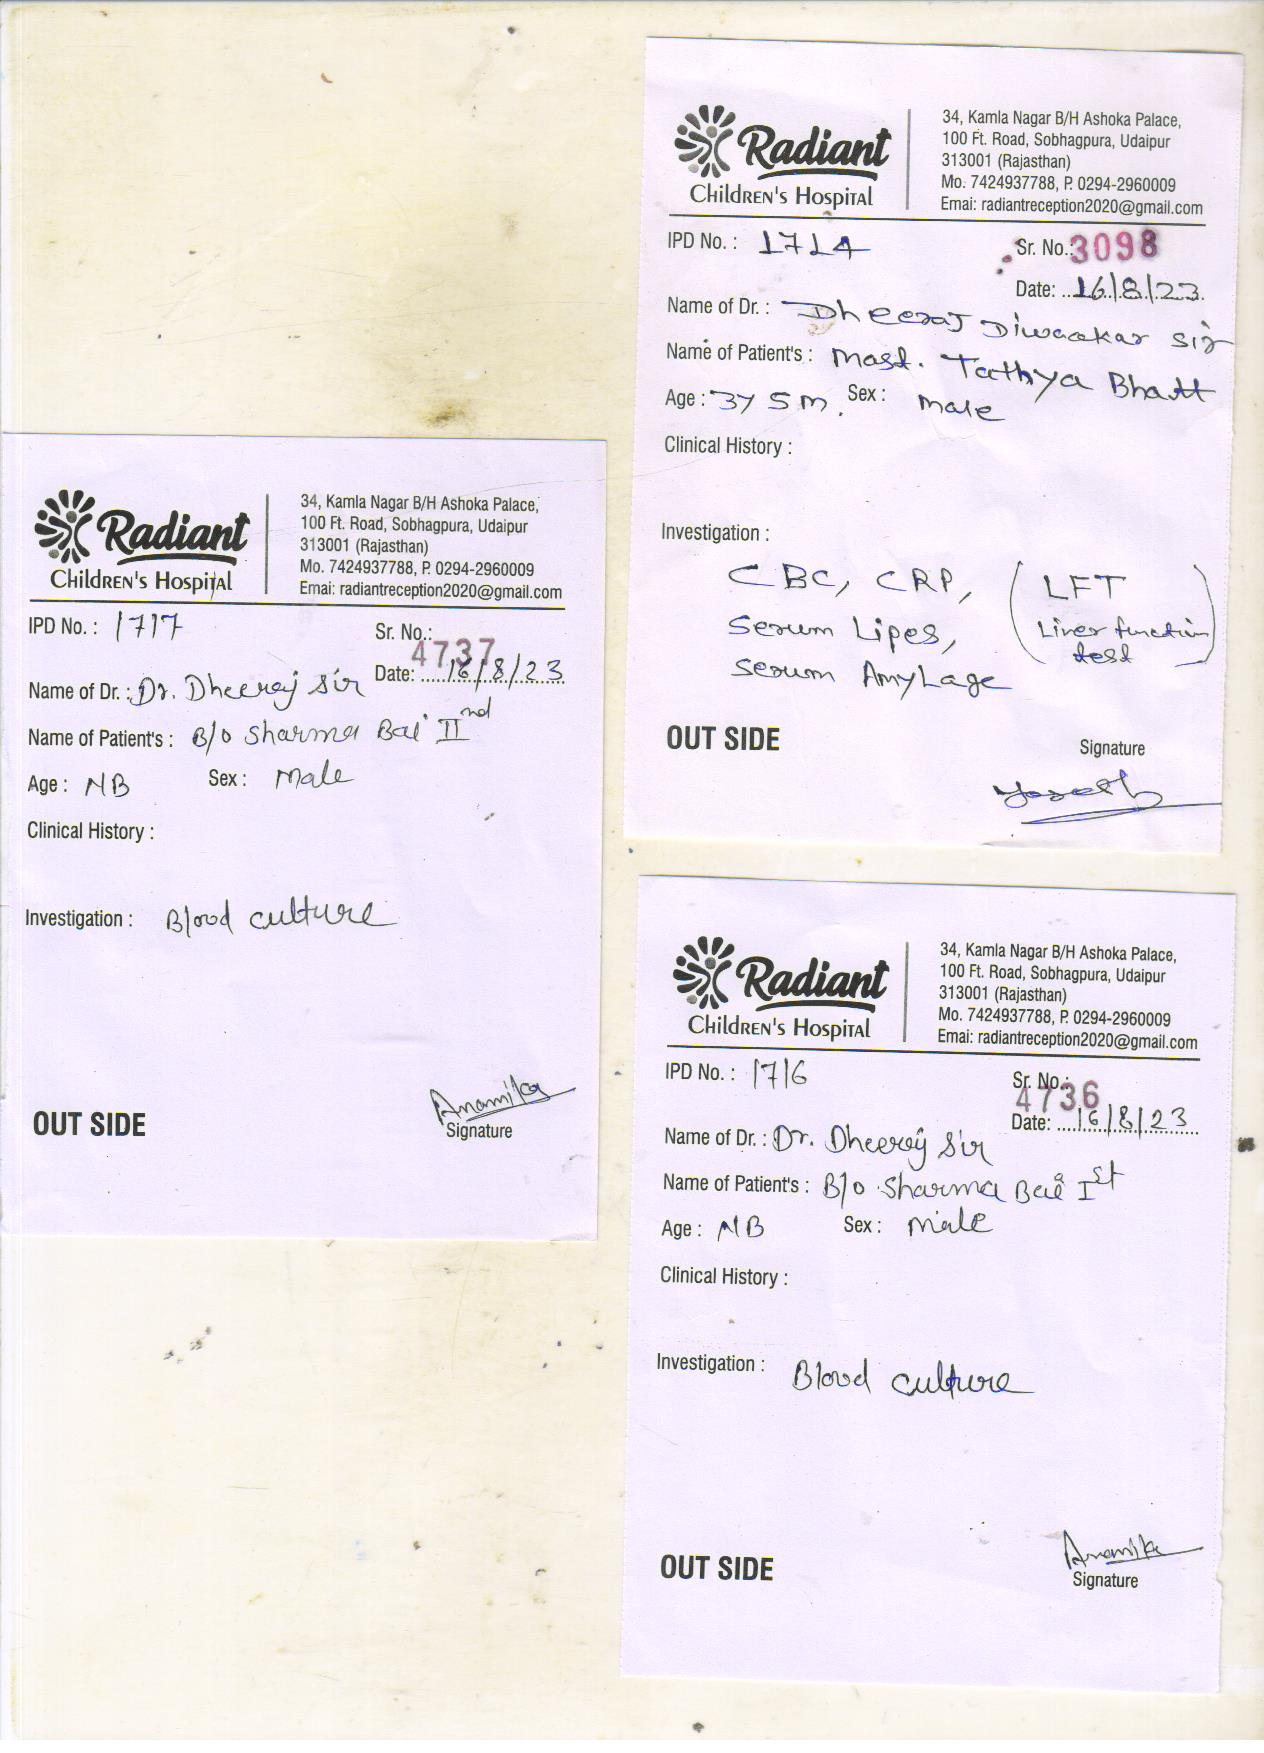 Radiant
Children's Hospital
34, Kamla Nagar B/H Ashoka Palace,
100 Ft. Road, Sobhagpura, Udaipur
313001 (Rajasthan)
Mo. 7424937788, P. 0294-2960009
Emai: radiantreception2020@gmail.com
IPD No. : 1714
Sr. No.: 3098
Date: 16/8/23
Name of Dr. : Dheeraj Diwaakar sir
Name of Patient's : Mast. Tathya Bhatt
Age : 3y 5m. Sex : Male
Clinical History :
Investigation :
CBC, CRP, (LFT
Liver function
test)
Serum Lipes,
Serum Amylage
OUT SIDE
Signature
Radiant
Children's Hospital
34, Kamla Nagar B/H Ashoka Palace,
100 Ft. Road, Sobhagpura, Udaipur
313001 (Rajasthan)
Mo. 7424937788, P. 0294-2960009
Emai: radiantreception2020@gmail.com
IPD No. : 1717
Sr. No.: 4737
Date: 16/8/23
Name of Dr. : Dr. Dheeraj Sir
Name of Patient's : B/o Sharma Bai IInd
Age : NB Sex : Male
Clinical History :
Investigation : Blood culture
Anamika
OUT SIDE
Signature
Radiant
Children's Hospital
34, Kamla Nagar B/H Ashoka Palace,
100 Ft. Road, Sobhagpura, Udaipur
313001 (Rajasthan)
Mo. 7424937788, P. 0294-2960009
Emai: radiantreception2020@gmail.com
IPD No. : 1716
Sr. No.: 4736
Date: 16/8/23
Name of Dr. : Dr. Dheeraj Sir
Name of Patient's : B/o Sharma Bai Ist
Age : NB Sex : Male
Clinical History :
Investigation : Blood culture
Anamika
OUT SIDE
Signature